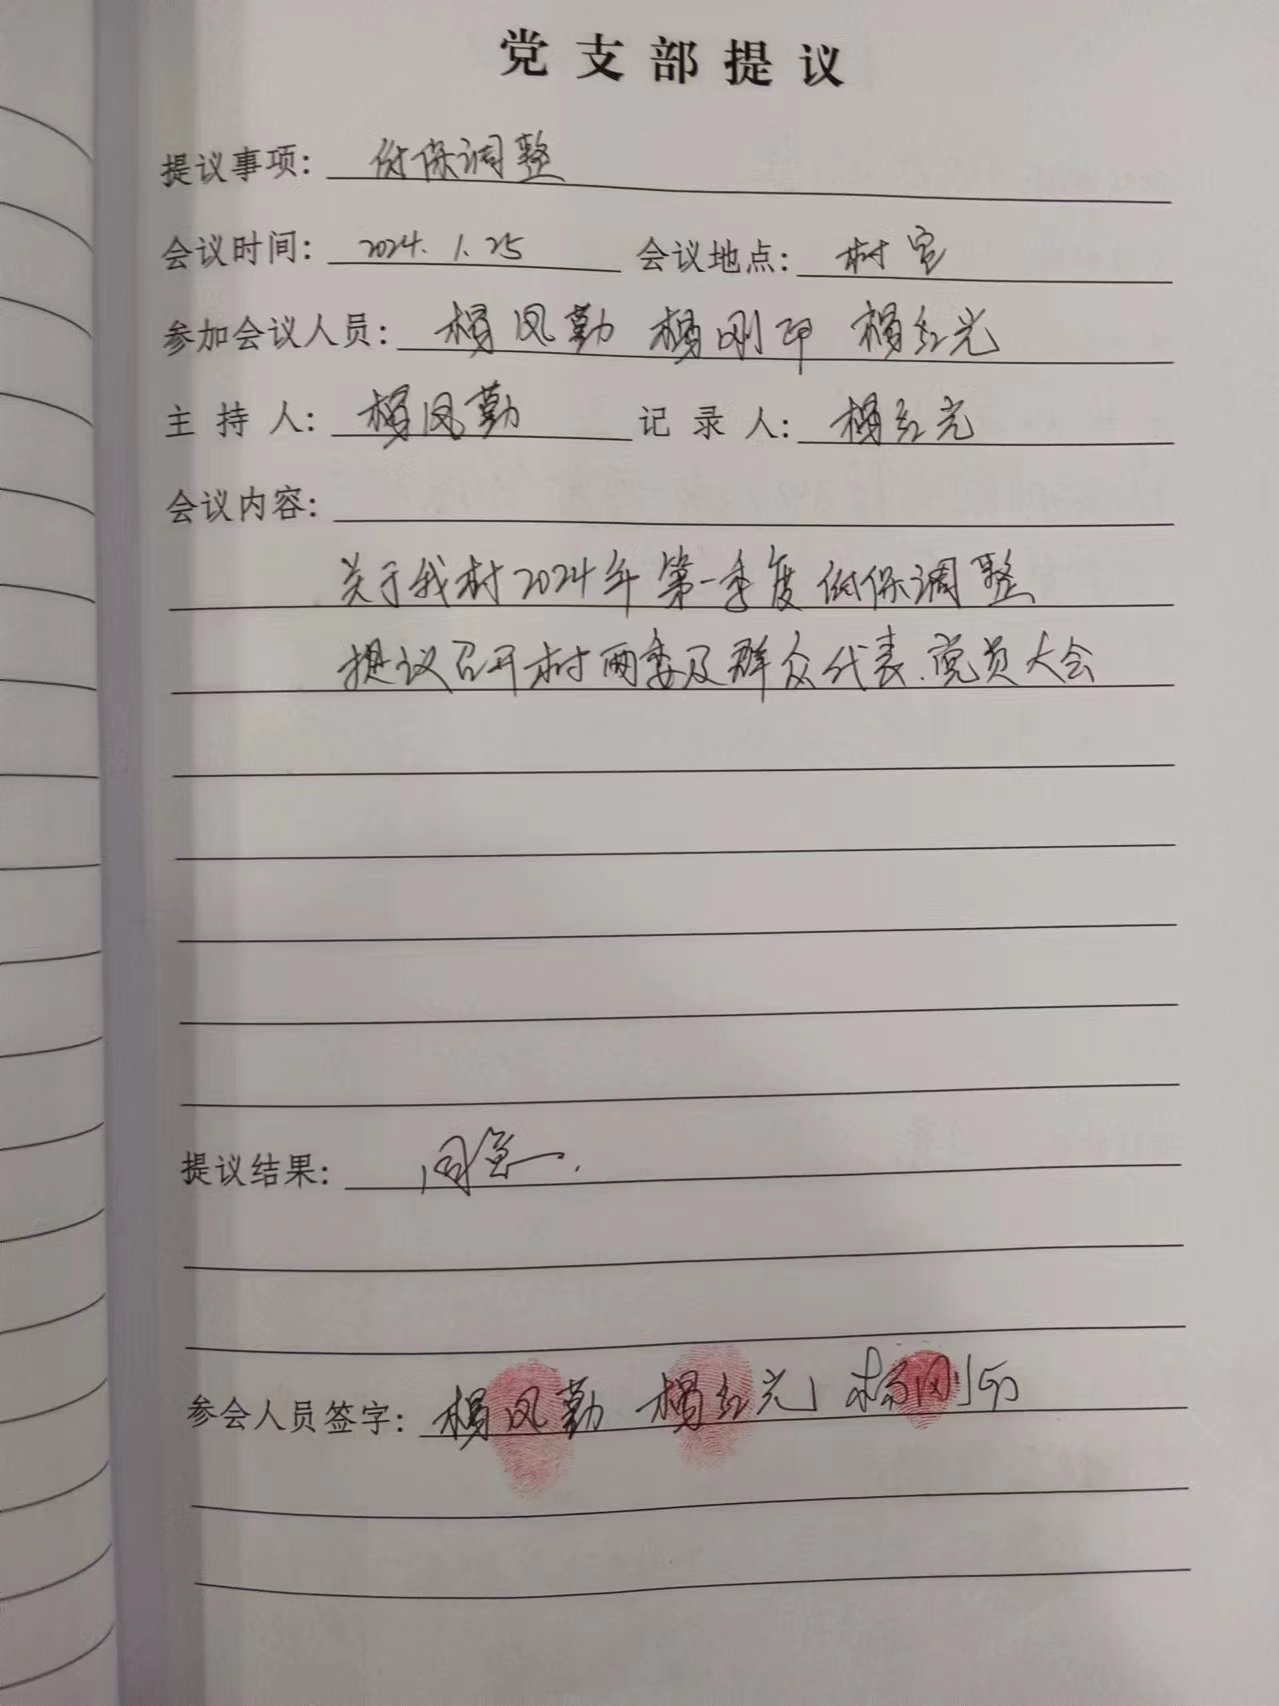 党支部提议
提议事项：低保调整
会议时间：2024.1.25 会议地点：村室
参加会议人员：杨凤勤 杨刚印 杨红光
主持人：杨凤勤 记录人：杨红光
会议内容：
关于我村2024年第一季度低保调整
提议召开村两委及群众代表、党员大会
提议结果：同意.
参会人员签字：杨凤勤 杨红光 杨刚印